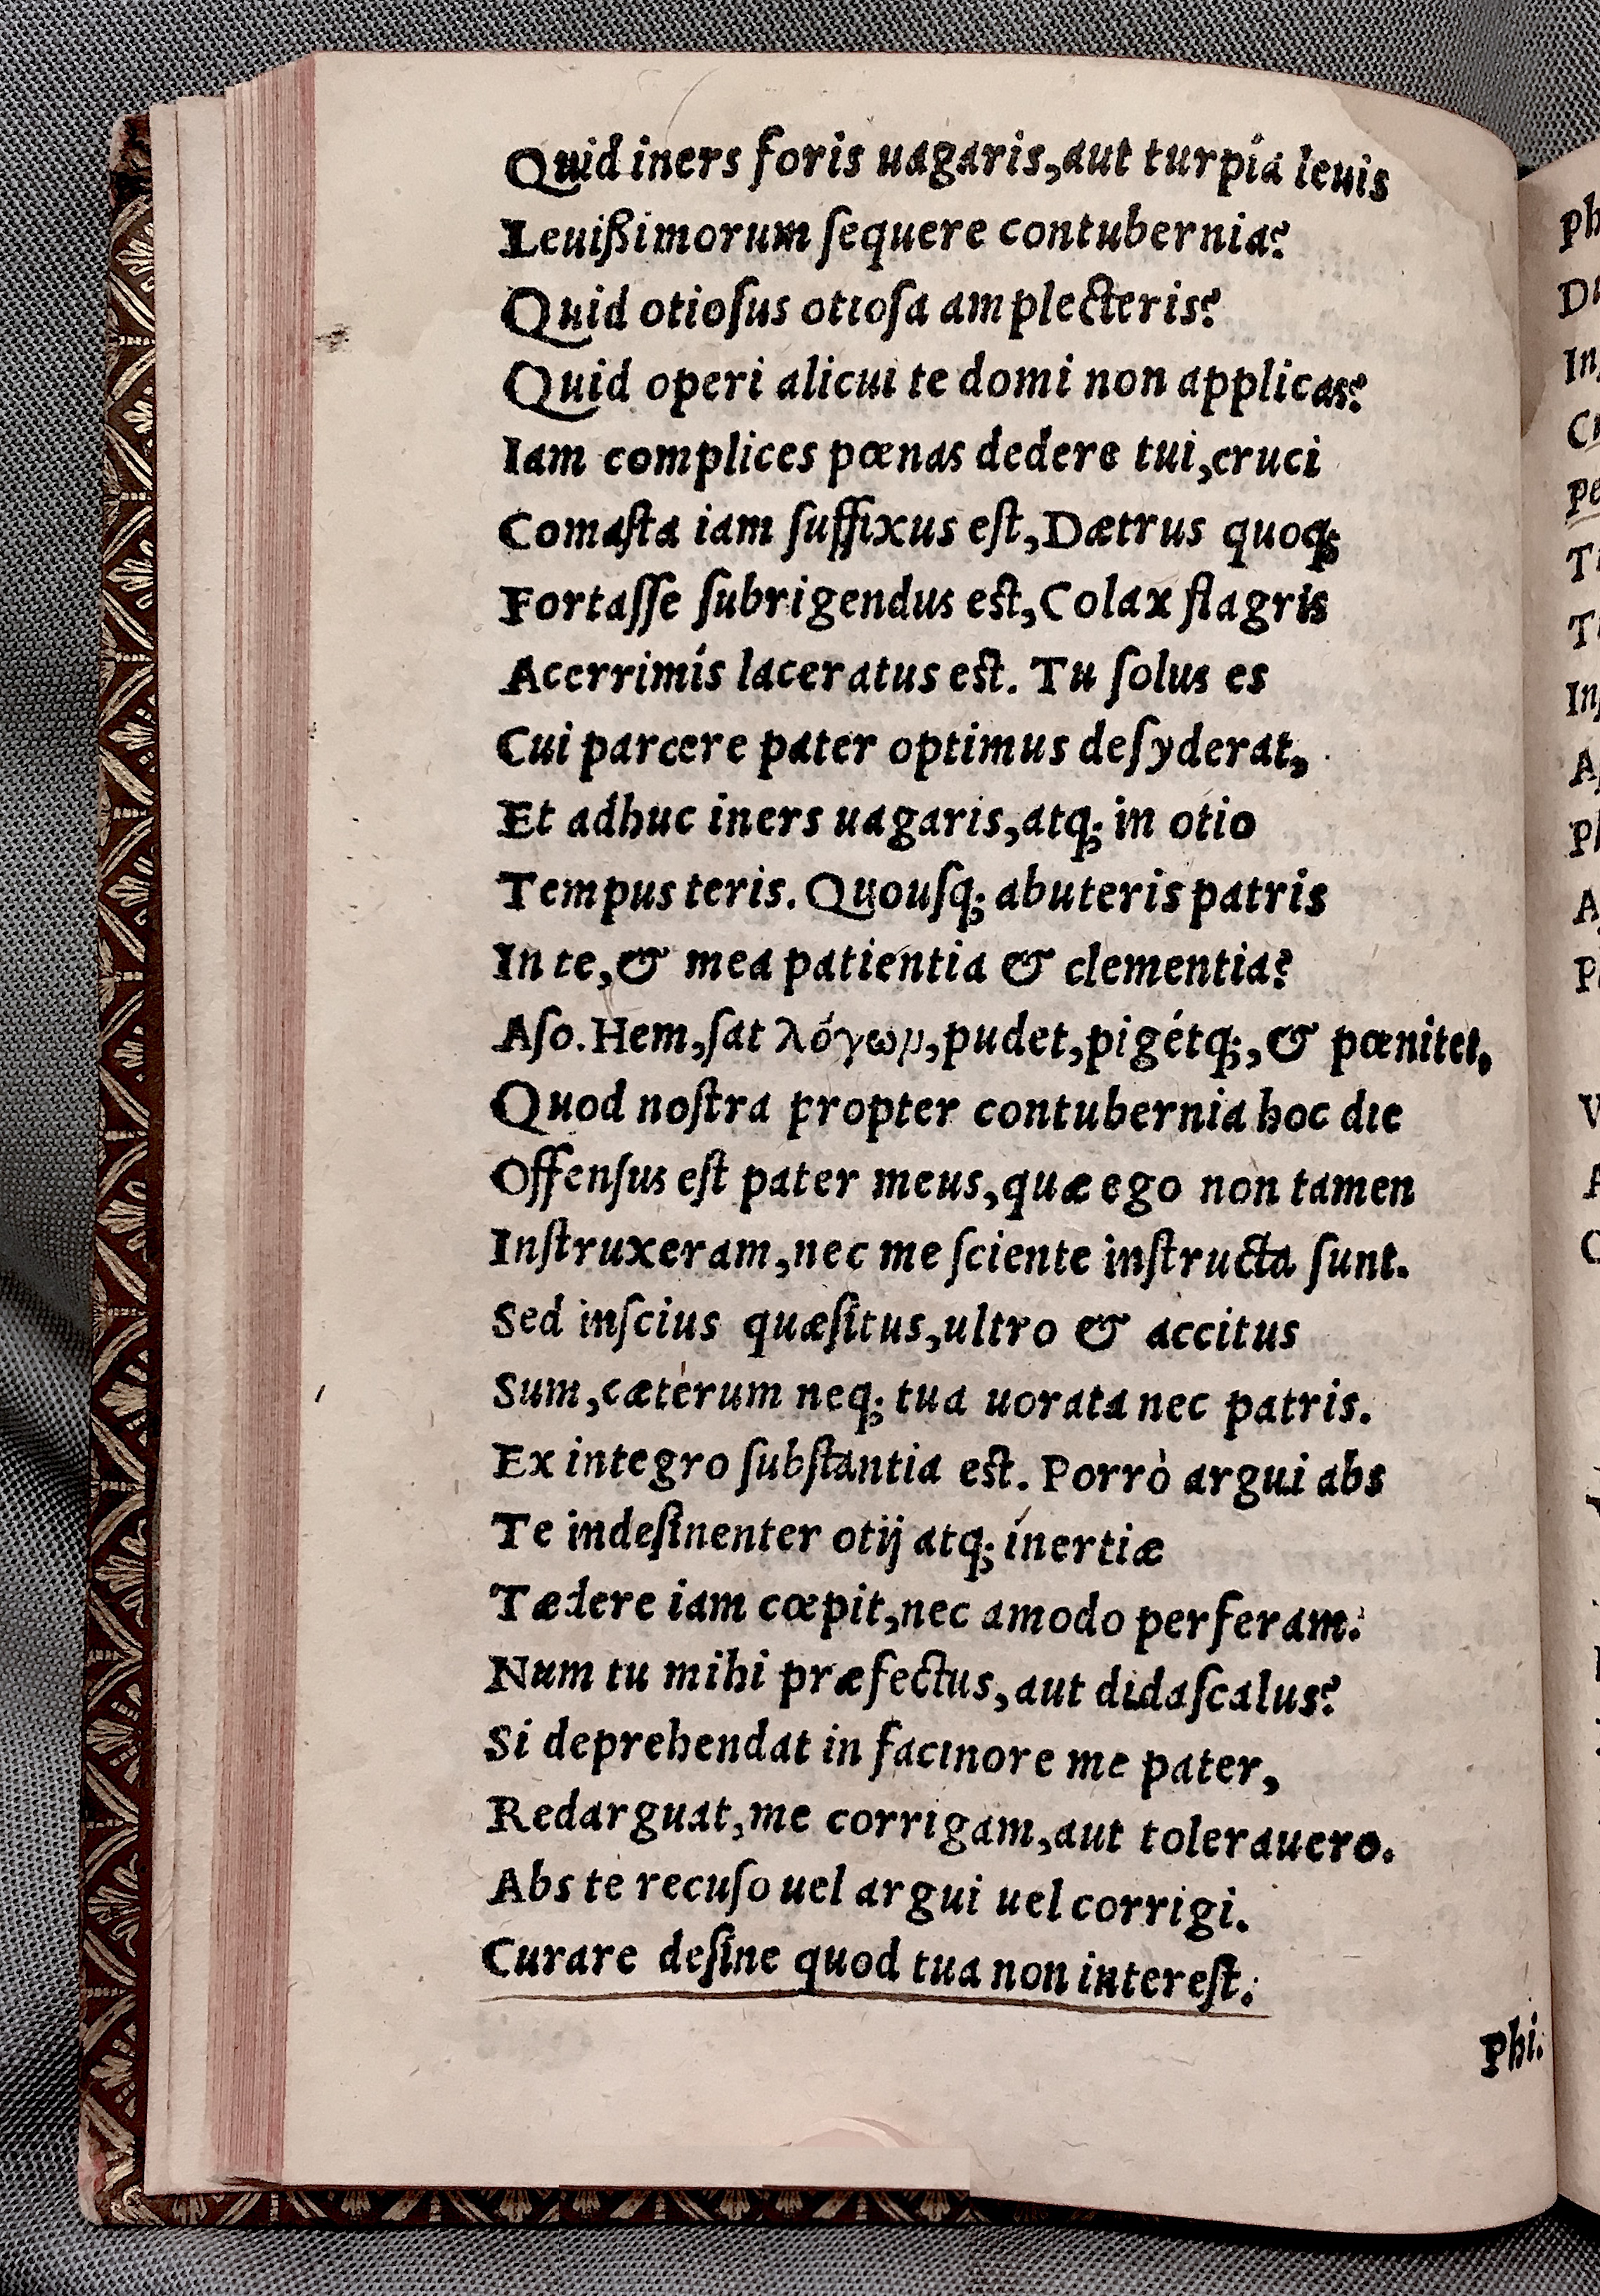 Quid iners foris uagaris, aut turpía leuis
Leuißimorum ſequere contubernia?
Quid otioſus otioſa amplecteris?
Quid operi alicui te domi non applicas?
Iam complices pœnas dedere tui, cruci
Comaſta iam ſuffixus eſt, Dætrus quoq;
Fortaſſe ſubrigendus eſt, Colax flagris
Acerrimís laceratus eſt. Tu ſolus es
Cui parcere pater optimus deſyderat,
Et adhuc iners uagaris, atq; in otio
Tempus teris. Quouſq; abuteris patris
In te, & mea patientia & clementia?
Aſo. Hem, ſat λόγωμ, pudet, pigétq;, & pœnitet,
Quod noſtra propter contubernia hoc die
Offenſus eſt pater meus, quæ ego non tamen
Inſtruxeram, nec me ſciente inſtructa ſunt.
Sed inſcius quæſitus, ultro & accitus
Sum, cæterum neq; tua uorata nec patris.
Ex integro ſubſtantia eſt. Porrò argui abs
Te indeſinenter otij atq; ínertiæ
Tædere iam cœpit, nec amodo perferam.
Num tu mihi præfectus, aut didaſcalus?
Si deprehendat in facinore me pater,
Redarguat, me corrigam, aut tolerauero.
Abs te recuſo uel argui uel corrigi.
Curare deſine quod tua non intereſt.
Phi.